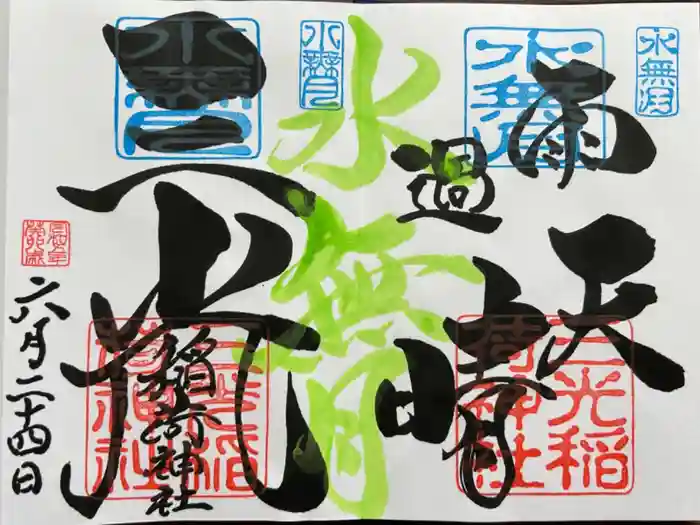 水無月
雨過天晴
水無月
三光稲荷神社
水無月
水無月
水無月
三光
稲荷神社
三光稲荷神社
六月二十四日